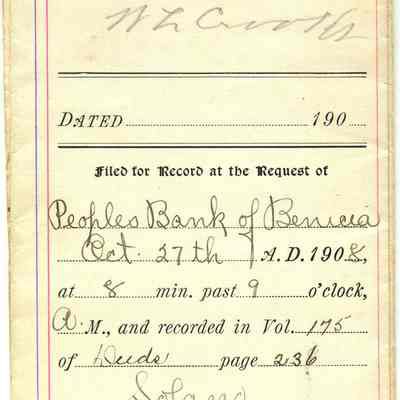 W L Crooks
DATED 190
Filed for Record at the Request of
Peoples Bank of Benicia
Oct. 27th A. D. 1908,
at 8 min. past 9 o'clock,
A M., and recorded in Vol. 175
of Deeds page 236
Solano